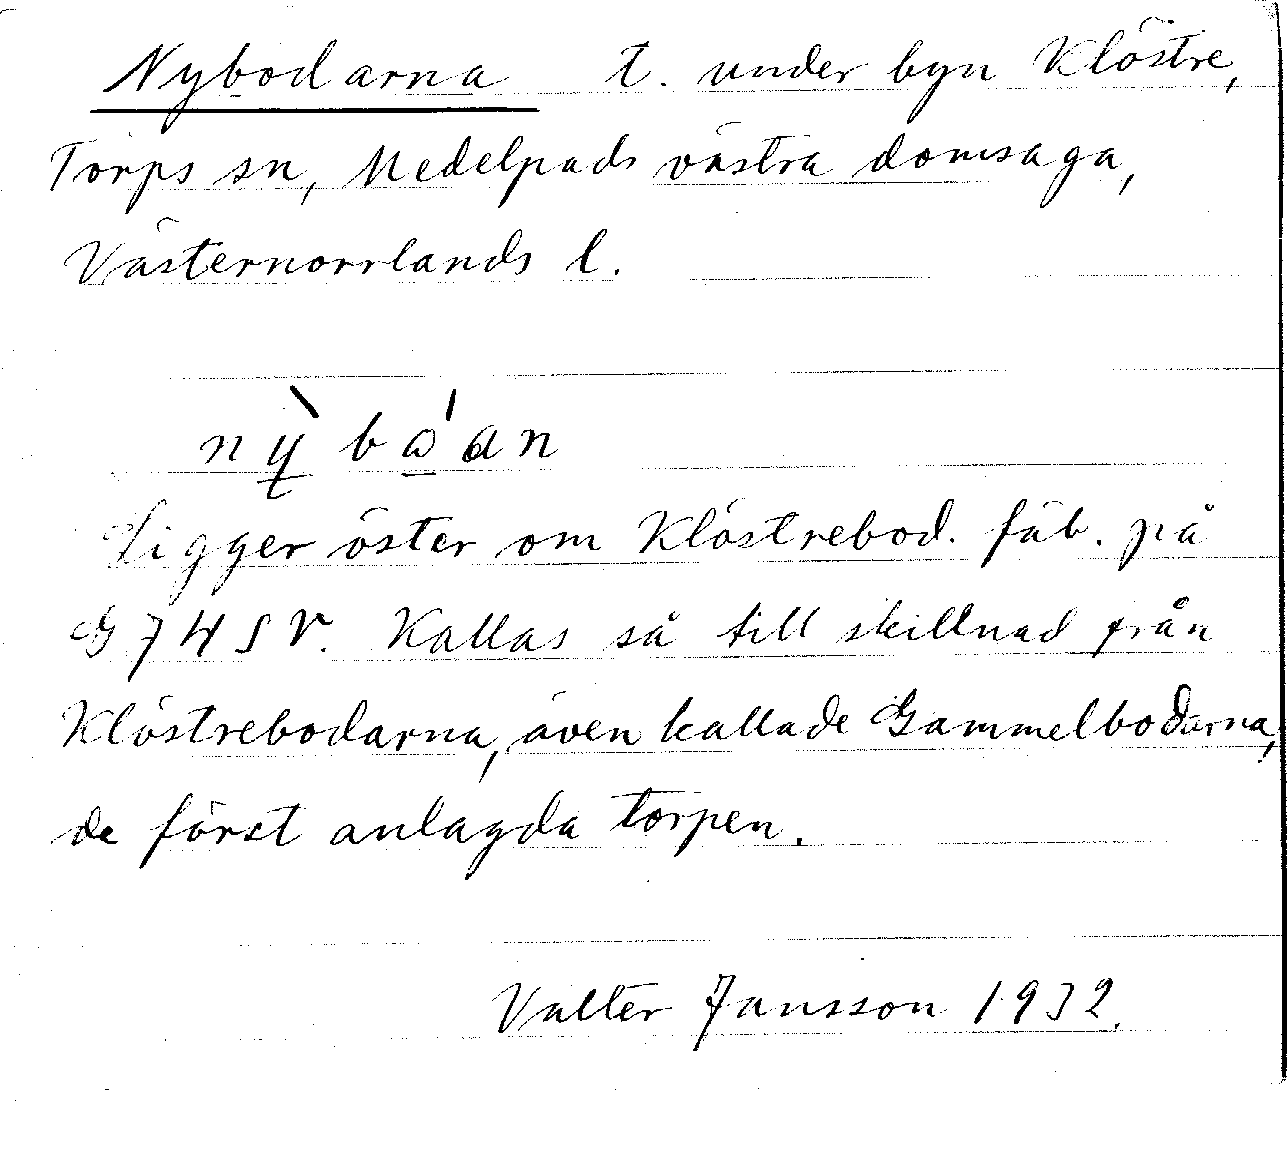 Nybodarna t. under byn Klöstre,
Torps sn, Medelpads västra domsaga,
Västernorrlands l.
nỳbóan
Ligger öster om Klöstrebod. fäb. på
G 7 H S V. Kallas så till skillnad från
Klöstrebodarna, även kallade Gammelbodarna,
de först anlagda torpen.
Valter Jansson 1932.